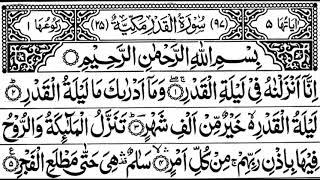 اٰیَاتُهَا ۵ (۹۷) سُوْرَةُ الْقَدْرِ مَكِّیَّةٌ (۲۵) رُكُوْعُهَا ۱
بِسْمِ اللّٰهِ الرَّحْمٰنِ الرَّحِیْمِ
اِنَّاۤ اَنْزَلْنٰهُ فِیْ لَیْلَةِ الْقَدْرِ ۚۖ۱ وَمَاۤ اَدْرٰىكَ مَا لَیْلَةُ الْقَدْرِ ؕ۲
لَیْلَةُ الْقَدْرِ ۙ۬ خَیْرٌ مِّنْ اَلْفِ شَهْرٍ ؕ۳ تَنَزَّلُ الْمَلٰٓىِٕكَةُ وَالرُّوْحُ
فِیْهَا بِاِذْنِ رَبِّهِمْ ۚ مِنْ كُلِّ اَمْرٍ ۙۛ۴ سَلٰمٌ ۛ۫ هِیَ حَتّٰى مَطْلَعِ الْفَجْرِ ۠۵